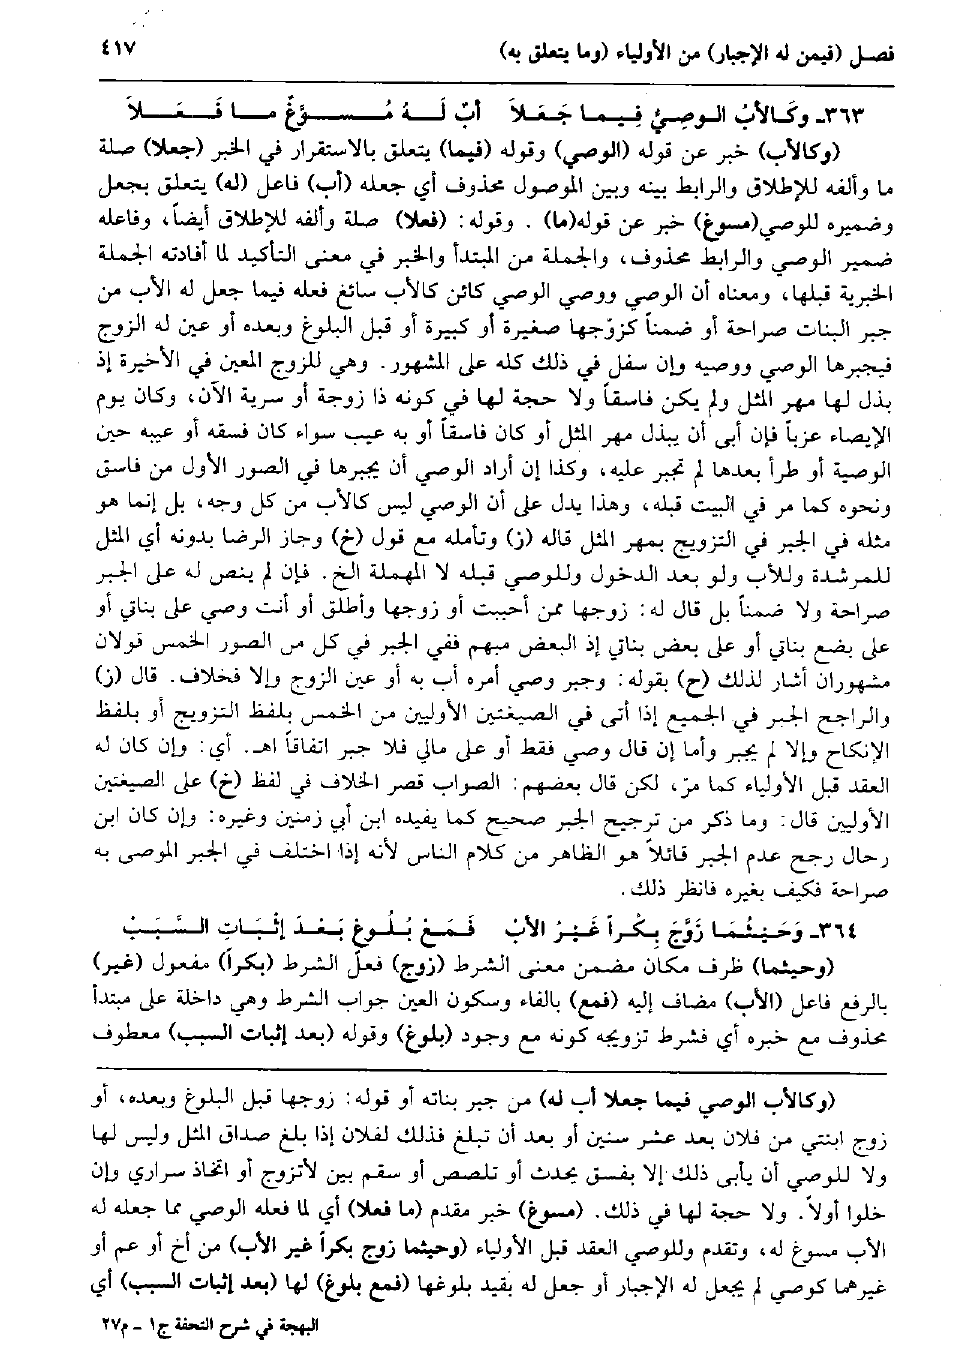 فصل (فيمن له الإجبار) من الأولياء (وما يتعلق به)
٤١٧
٣٦٣ـ وكَالأبُ الوصيُّ فِيمَا جَعَلاَ أبٌ لَهُ مُسَوَّغٌ ما فَعَلاَ
(وكالأب) خبر عن قوله (الوصي) وقوله (فيما) يتعلق بالاستقرار في الخبر (جعلا) صلة
ما وألفه للإطلاق والرابط بينه وبين الموصول محذوف أي جعله (أب) فاعل (له) يتعلق بجعل
وضميره للوصي(مسوغ) خبر عن قوله(ما) . وقوله: (فعلا) صلة وألفه للإطلاق أيضاً، وفاعله
ضمير الوصي والرابط محذوف، والجملة من المبتدأ والخبر في معنى التأكيد لما أفادته الجملة
الخبرية قبلها، ومعناه أن الوصي ووصي الوصي كائن كالأب سائغ فعله فيما جعل له الأب من
جبر البنات صراحة أو ضمناً كزوّجها صغيرة أو كبيرة أو قبل البلوغ وبعده أو عين له الزوج
فيجبرها الوصي ووصيه وإن سفل في ذلك كله على المشهور. وهي للزوج المعين في الأخيرة إذ
بذل لها مهر المثل ولم يكن فاسقاً ولا حجة لها في كونه ذا زوجة أو سرية الآن، وكان يوم
الإيصاء عزباً فإن أبى أن يبذل مهر المثل أو كان فاسقاً أو به عيب سواء كان فسقه أو عيبه حين
الوصية أو طرأ بعدها لم تجبر عليه، وكذا إن أراد الوصي أن يجبرها في الصور الأول من فاسق
ونحوه كما مر في البيت قبله، وهذا يدل على أن الوصي ليس كالأب من كل وجه، بل إنما هو
مثله في الجبر في التزويج بمهر المثل قاله (ز) وتأمله مع قول (خ) وجاز الرضا بدونه أي المثل
للمرشدة وللأب ولو بعد الدخول وللوصي قبله لا المهملة الخ. فإن لم ينص له على الجبر
صراحة ولا ضمناً بل قال له: زوجها ممن أحببت أو زوجها وأطلق أو أنت وصي على بناتي أو
على بضع بناتي أو على بعض بناتي إذ البعض مبهم ففي الجبر في كل من الصور الخمس قولان
مشهوران أشار لذلك (ح) بقوله: وجبر وصي أمره أب به أو عين الزوج وإلا فخلاف. قال (ز)
والراجح الجبر في الجميع إذا أتى في الصيغتين الأوليين من الخمس بلفظ التزويج أو بلفظ
الإنكاح وإلا لم يجبر وأما إن قال وصي فقط أو على مالي فلا جبر اتفاقاً اهـ. أي: وإن كان له
العقد قبل الأولياء كما مرّ، لكن قال بعضهم: الصواب قصر الخلاف في لفظ (خ) على الصيغتين
الأوليين قال: وما ذكر من ترجيح الجبر صحيح كما يفيده ابن أبي زمنين وغيره: وإن كان ابن
رحال رجح عدم الجبر قائلاً هو الظاهر من كلام الناس لأنه إذا اختلف في الجبر الموصى به
صراحة فكيف بغيره فانظر ذلك.
٣٦٤ـ وَحَيثُمَا زَوَّجَ بِكْراً غَيْرُ الأَبْ فَمَعْ بُلُوغٍ بَعْدَ إثْبَاتِ السَّبَبْ
(وحيثما) ظرف مكان مضمن معنى الشرط (زوج) فعل الشرط (بكراً) مفعول (غير)
بالرفع فاعل (الأب) مضاف إليه (فمع) بالفاء وسكون العين جواب الشرط وهي داخلة على مبتدأ
محذوف مع خبره أي فشرط تزويجه كونه مع وجود (بلوغ) وقوله (بعد إثبات السبب) معطوف
(وكالأب الوصي فيما جعلا أب له) من جبر بناته أو قوله: زوجها قبل البلوغ وبعده، أو
زوج ابنتي من فلان بعد عشر سنين أو بعد أن تبلغ فذلك لفلان إذا بلغ صداق المثل وليس لها
ولا للوصي أن يأبى ذلك إلا بفسق يحدث أو تلصص أو سقم بين لأتزوج أو اتخاذ سراري وإن
خلوا أولاً. ولا حجة لها في ذلك. (مسوغ) خبر مقدم (ما فعلا) أي لما فعله الوصي مما جعله له
الأب مسوغ له، وتقدم وللوصي العقد قبل الأولياء (وحيثما زوج بكراً غير الأب) من أخ أو عم أو
غيرهما كوصي لم يجعل له الإجبار أو جعل له بقيد بلوغها (فمع بلوغ) لها (بعد إثبات السبب) أي
البهجة في شرح التحفة ج١ ـ م٢٧